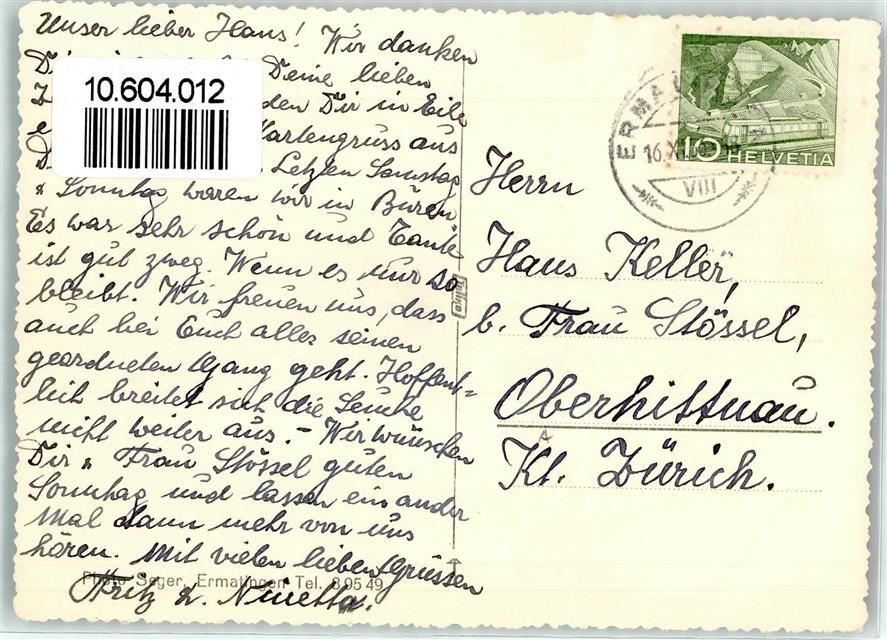 Unser lieber Hans! Wir danken
Deine lieben
den Dir in Eile
Kartengruss aus
Letzten Samstag
& Sonntag waren wir in Büren
Es war sehr schön und Tante
ist gut zweg. Wenn es nur so
bleibt. Wir freuen uns, dass
auch bei Euch alles seinen
geordneten Gang geht. Hoffent=
lich breitet sich die Seuche
nicht weiter aus. – Wir wünschen
Dir u. Frau Stössel guten
Sonntag und lassen ein ander
Mal dann mehr von uns
hören. Mit vielen lieben Grüssen
Fritz u. Ninetta.
Photo Seger, Ermatingen Tel. 8 95 49
10.604.012
ERMA
16.XI.
VIII
10 HELVETIA
Herrn
Hans Keller,
b. Frau Stössel,
Oberhittnau.
Kt. Zürich.